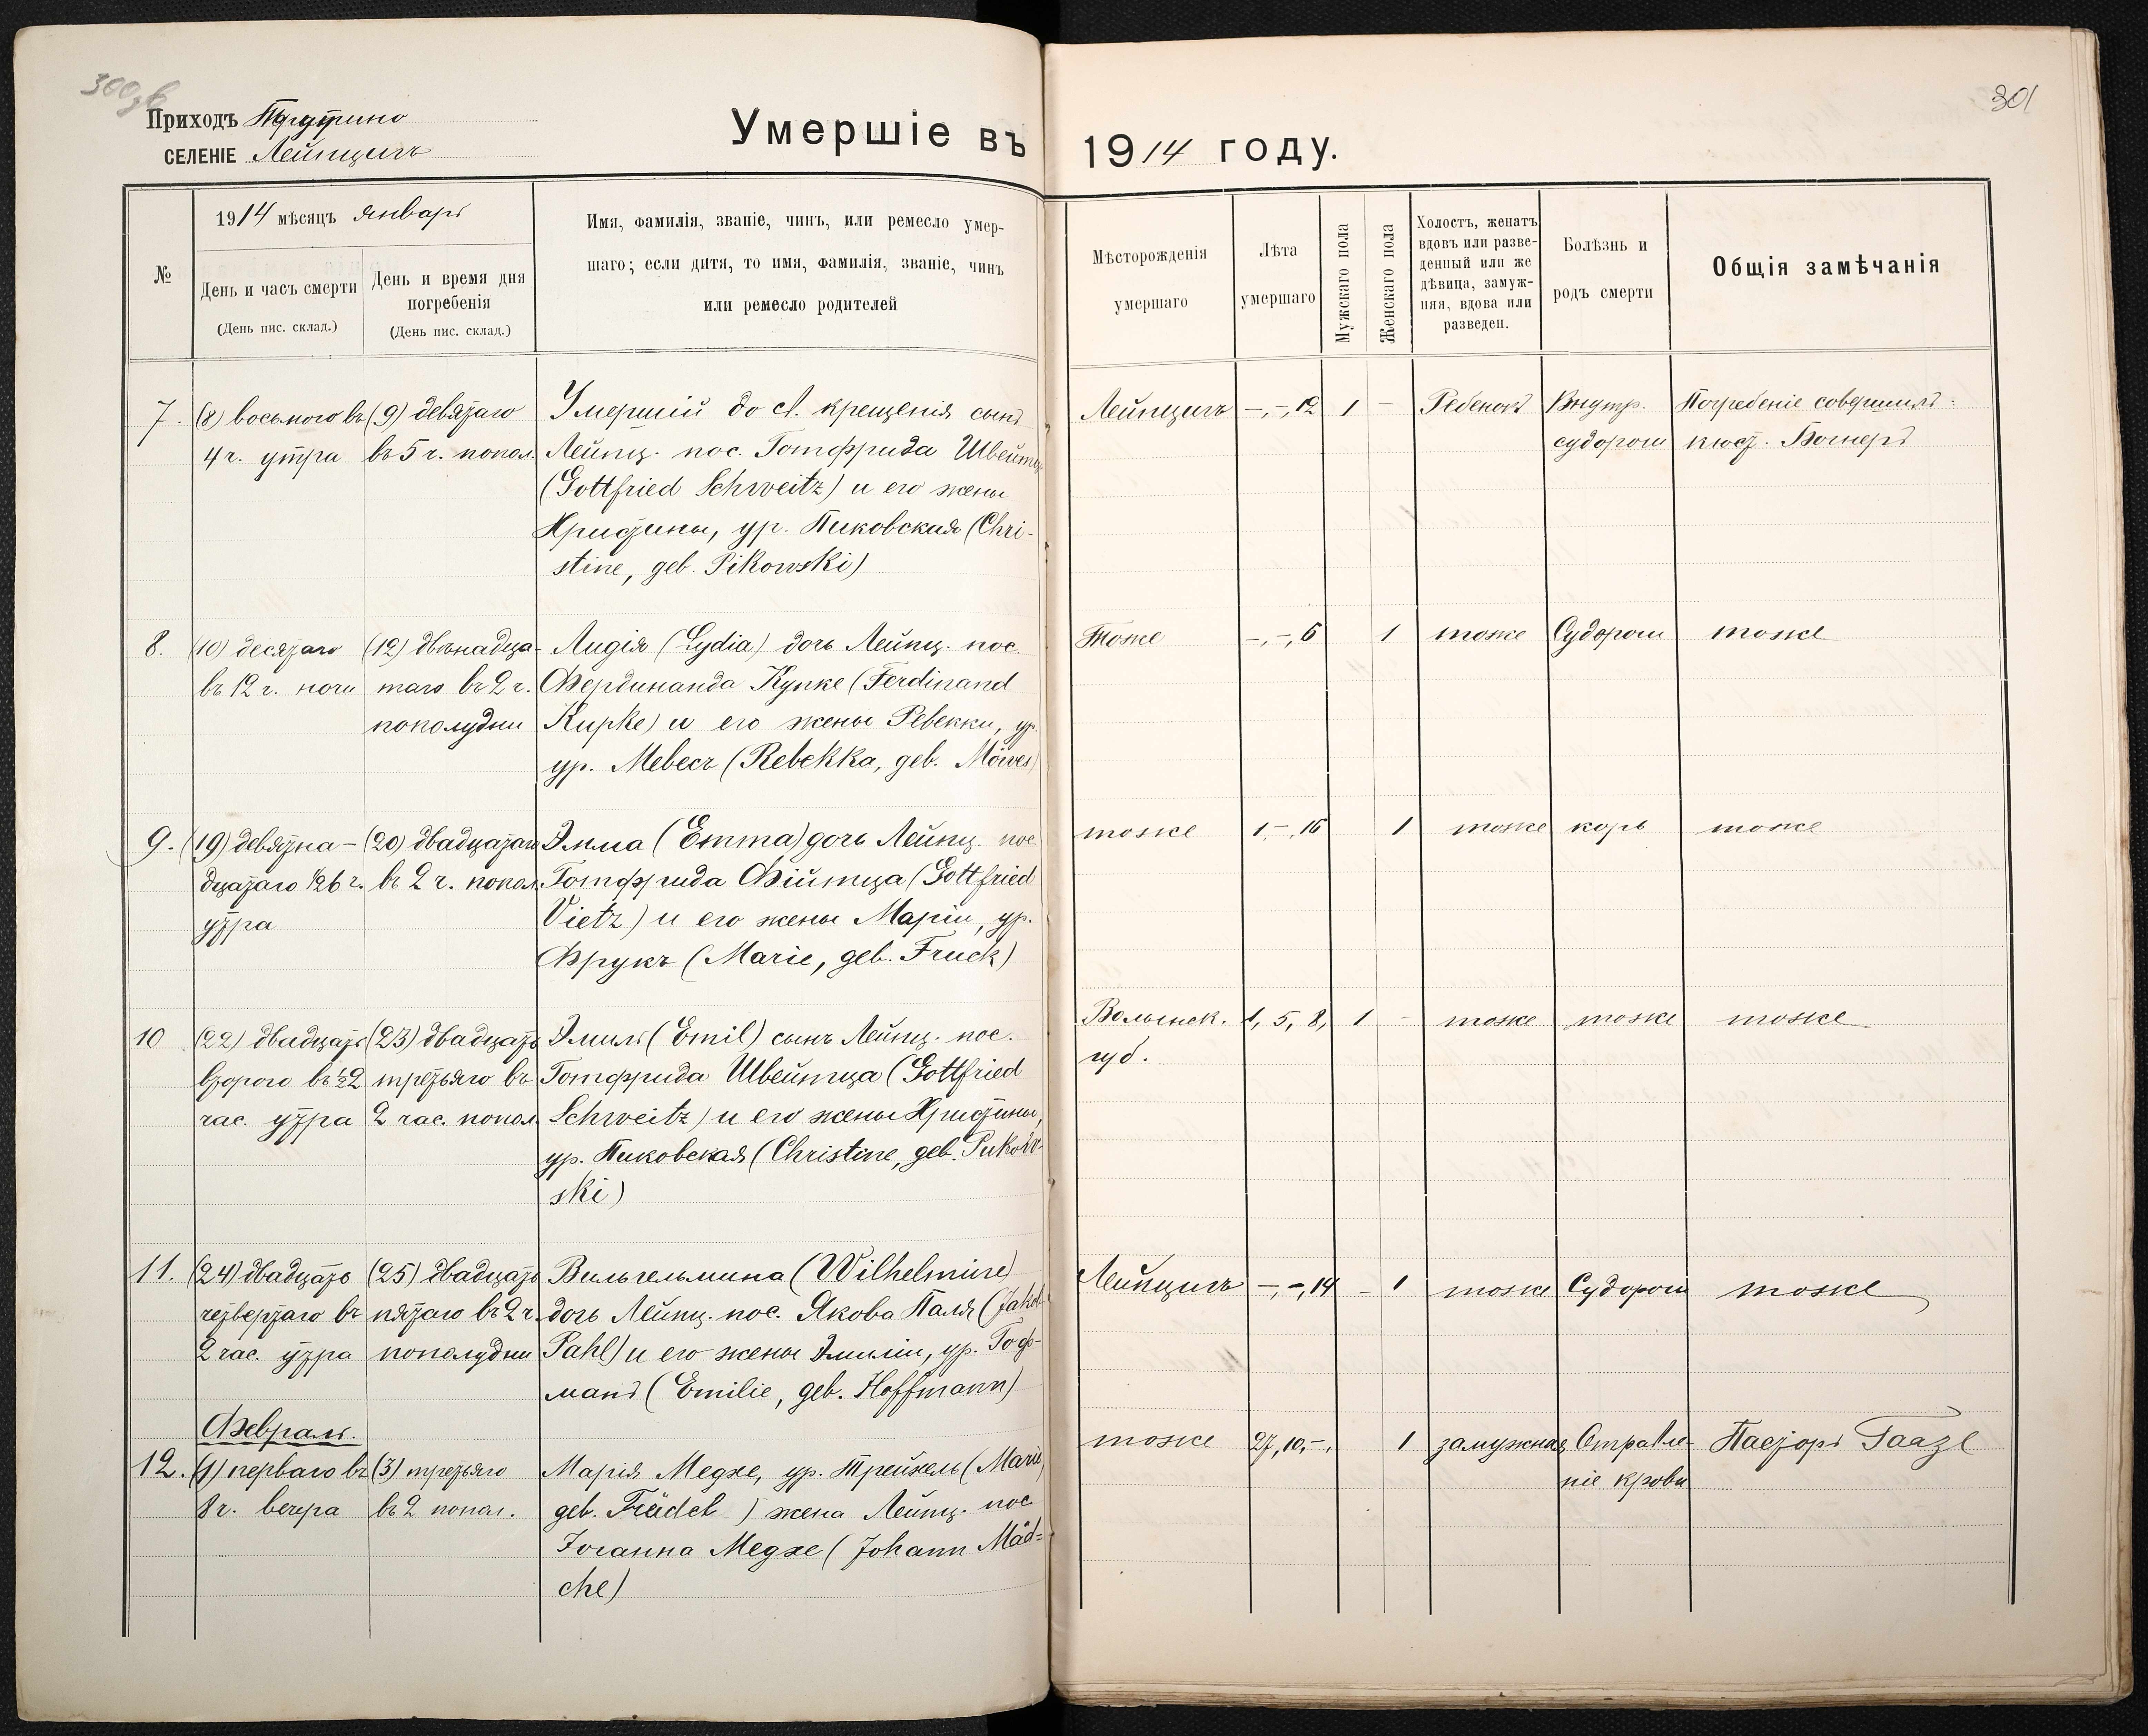 301
Приходъ
СЕЛЕНІЕ Лейпцигъ
Умершіе въ 1914 году.
№
1914 мѣсяцъ январь
День и часъ смерти
(День пис. склад.)
День и время дня
погребенія
(День пис. склад.)
Имя, фамилія, званіе, чинъ, или ремесло умер-
шаго; если дитя, то имя, фамилія, званіе, чинъ
или ремесло родителей
Мѣсторожденія
умершаго
Лѣта
умершаго
Мужскаго пола
Женскаго пола
Холостъ, женатъ
вдовъ или разве-
денный или же
дѣвица, замуж-
няя, вдова или
разведен.
Болѣзнь и
родъ смерти
Общія замѣчанія
7.
(8) восьмого въ
4 ч. утра
(9) девятаго
въ 5 ч. попол.
Умершій до св. крещенія сынъ
Лейпц. пос. Готфрида Швейтц
(Gottfried Schweitz) и его жены
Христины, ур. Пиковская (Chri-
stine, geb. Pikowski)
Лейпцигъ
-,-,12
1
-
Ребенокъ
Внутр.
судороги
Погребеніе совершилъ:
кюст. Вогнеръ
8.
(10) десятаго
въ 12 ч. ночи
(12) двѣнадца-
таго въ 2 ч.
пополудни
Лидія (Lydia) дочь Лейпц. пос.
Фердинанда Купке (Ferdinand
Kupke) и его жены Ревекки, ур.
ур. Мевесъ (Rebekka, geb. Möwes)
Тоже
-,-,6
1
тоже
Судороги
тоже
9.
(19) девятна-
дцатаго ½6 ч.
утра
(20) двадцатаго
въ 2 ч. попол.
Эмма (Emma) дочь Лейпц. пос.
Готфрида Фійтца (Gottfried
Vietz) и его жены Маріи, ур.
Фрукъ (Marie, geb. Fruck)
тоже
1,-,16
1
тоже
корь
тоже
10
(22) двадцать
второго въ ½2
час. утра
(23) двадцать
третьяго въ
2 час. попол.
Эмиль (Emil) сынъ Лейпц. пос.
Готфрида Швейтца (Gottfried
Schweitz) и его жены Христины,
ур. Пиковская (Christine, geb. Pikow-
ski)
Волынск.
губ.
1, 5, 8,
1
-
тоже
тоже
тоже
11.
(24) двадцать
четвертаго въ
2 час. утра
(25) двадцать
пятаго въ 2 ч.
пополудни
Вильгельмина (Wilhelmine)
дочь Лейпц. пос. Якова Паля (Jakob
Pahl) и его жены Эмиліи, ур. Гоф-
манъ (Emilie, geb. Hoffmann)
Лейпцигъ
-,-,14
-
1
тоже
Судороги
тоже
Февраль.
12.
(1) перваго въ
8 ч. вечера
(3) третьяго
въ 2 попол.
Марія Медхе, ур. (Marie,
geb. ) жена Лейпц. пос
Іоганна Медхе (Johann Mäd-
che)
тоже
27,10,-,
1
замужняя
Отравле-
ніе крови
Пасторъ Гаазе